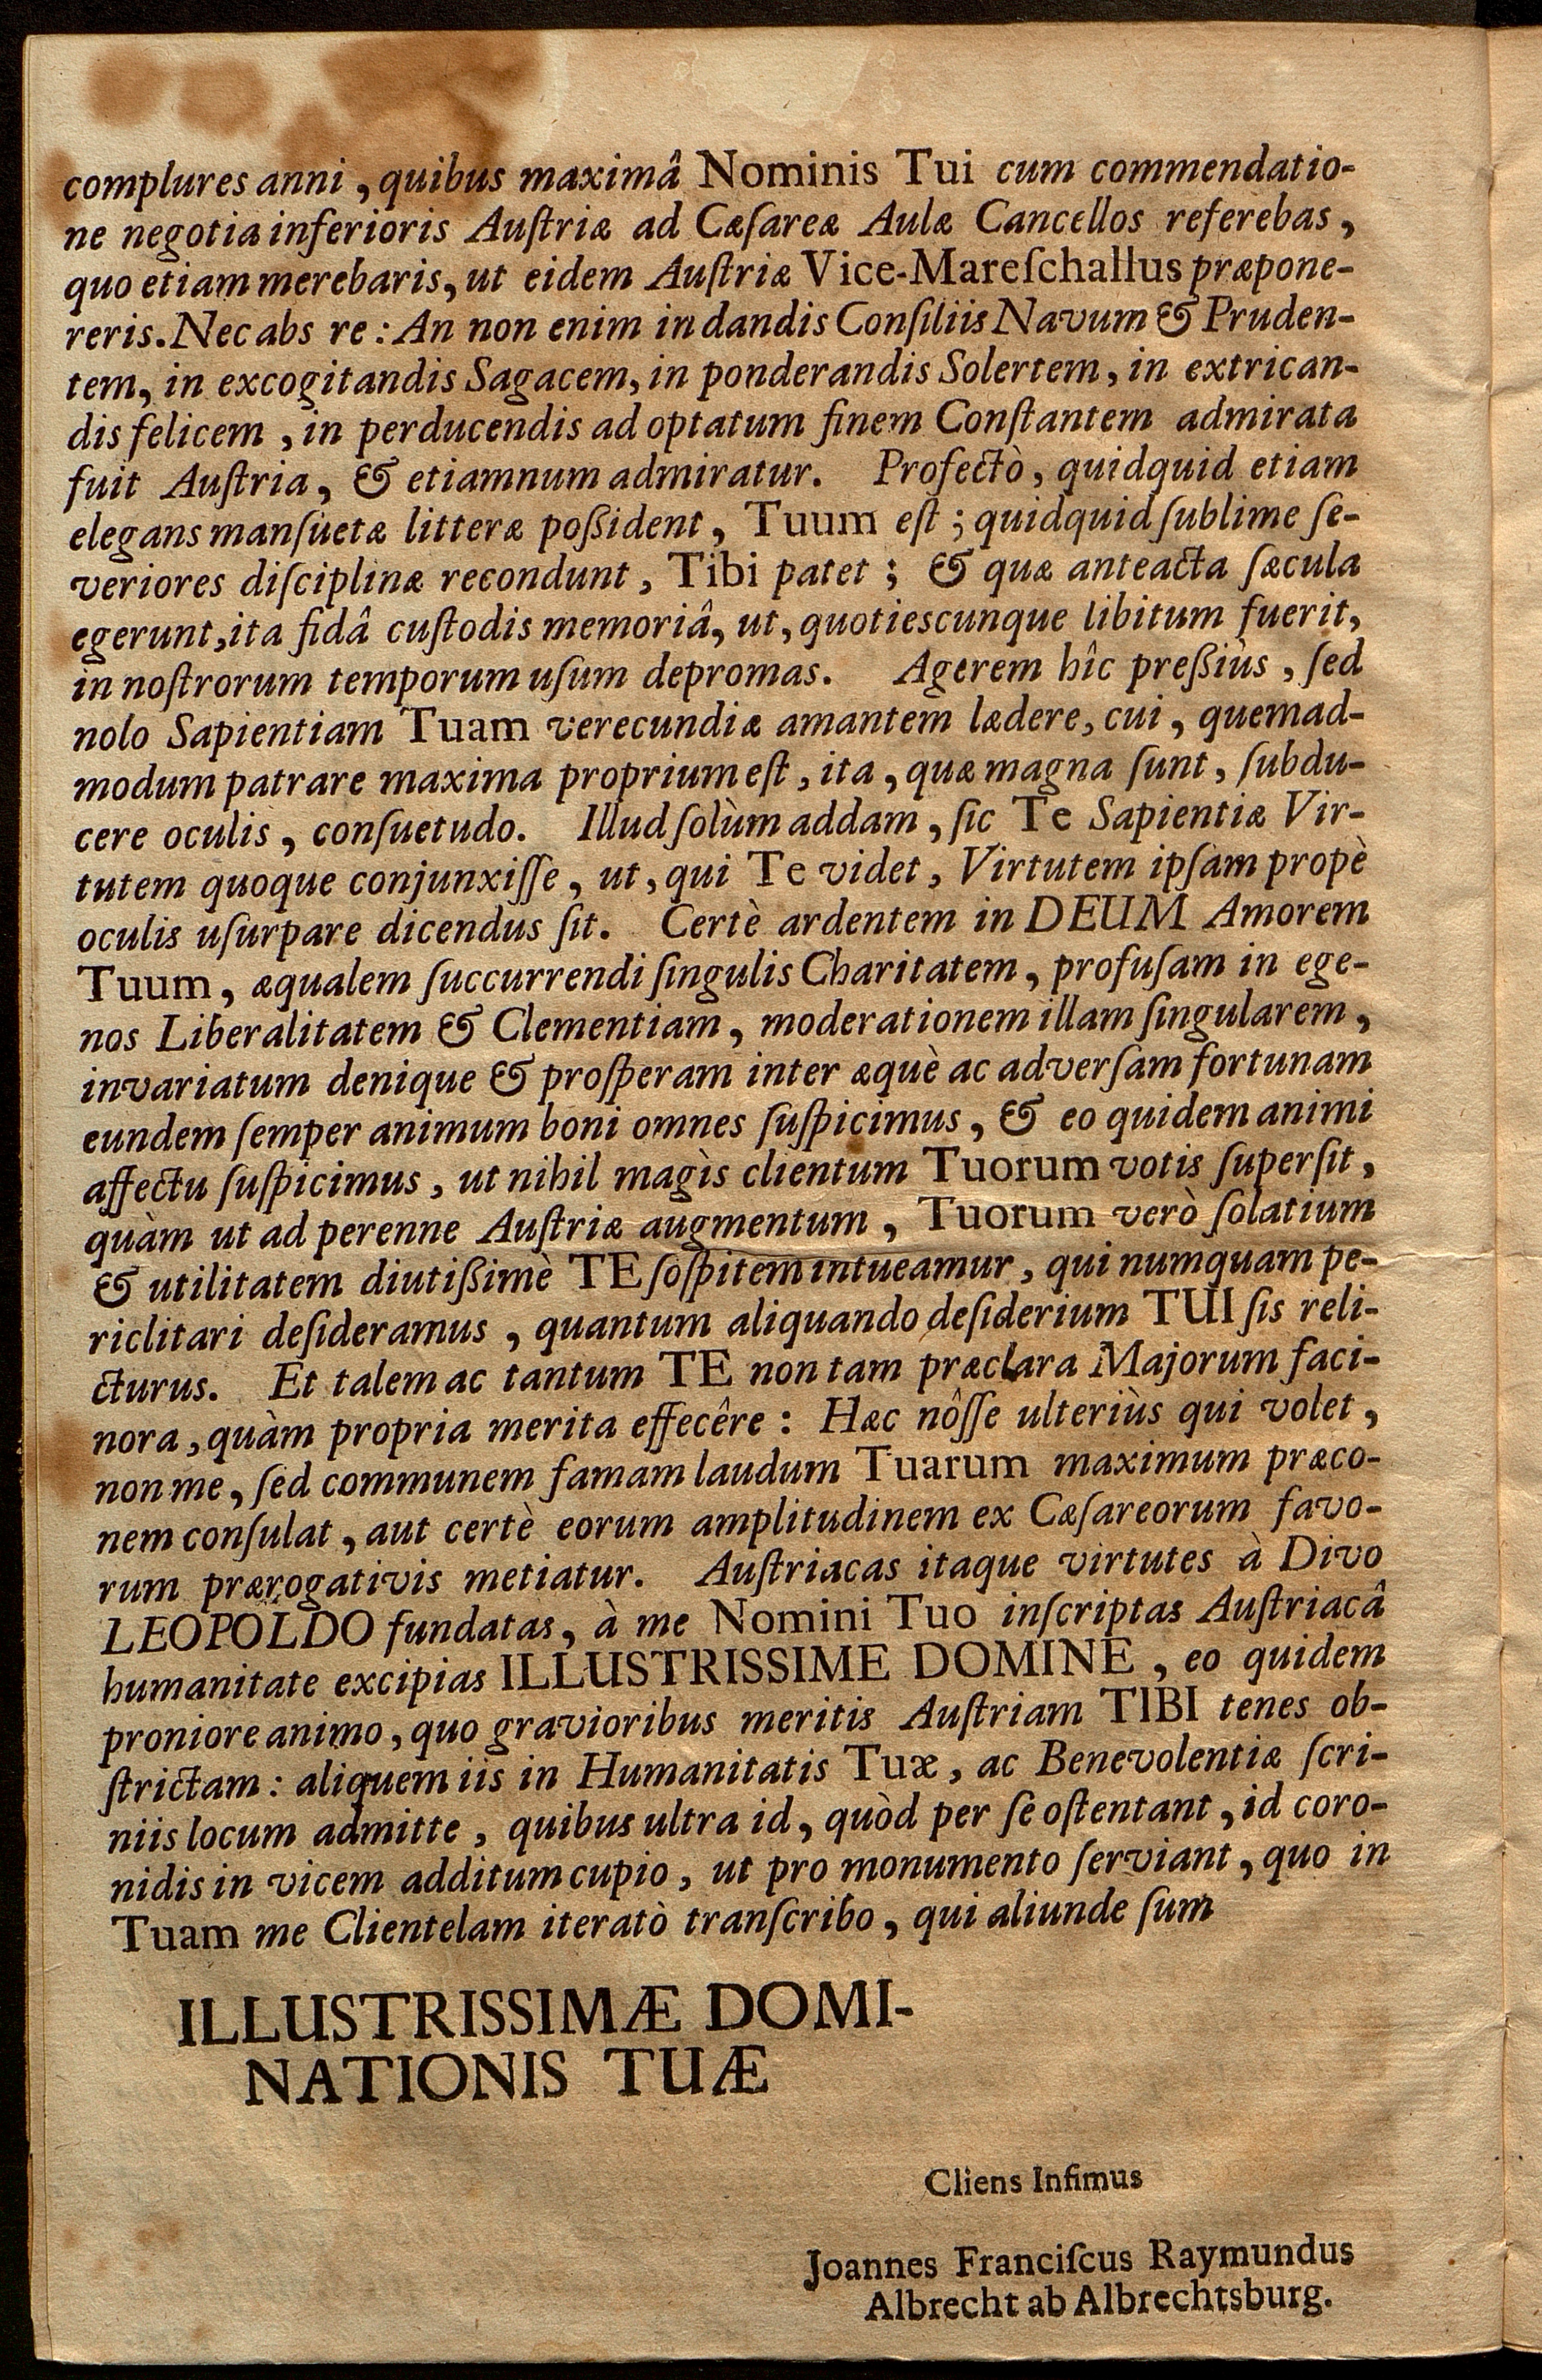 complures anni, quibus maximâ Nominis Tui cum commendatio-
ne negotia inferioris Auſtriæ ad Cæſareæ Aulæ Cancellos referebas,
quo etiam merebaris, ut eidem Auſtriæ Vice-Mareſchallus præpone-
reris. Nec abs re: An non enim in dandis Conſiliis Navum & Pruden-
tem, in excogitandis Sagacem, in ponderandis Solertem, in extrican-
dis felicem, in perducendis ad optatum finem Conſtantem admirata
fuit Auſtria, & etiamnum admiratur. Profectò, quidquid etiam
elegans manſuetæ litteræ poßident, Tuum eſt; quidquid ſublime ſe-
veriores diſciplinæ recondunt, Tibi patet; & quæ anteacta ſæcula
egerunt, ita fidâ cuſtodis memoriâ, ut, quotiescunque libitum fuerit,
in noſtrorum temporum uſum depromas. Agerem hîc preßiùs, ſed
nolo Sapientiam Tuam verecundiæ amantem lædere, cui, quemad-
modum patrare maxima proprium eſt, ita, quæ magna ſunt, ſubdu-
cere oculis, conſuetudo. Illud ſolùm addam, ſic Te Sapientiæ Vir-
tutem quoque conjunxiſſe, ut, qui Te videt, Virtutem ipſam propè
oculis uſurpare dicendus ſit. Certè ardentem in DEUM Amorem
Tuum, æqualem ſuccurrendi ſingulis Charitatem, profuſam in ege-
nos Liberalitatem & Clementiam, moderationem illam ſingularem,
invariatum denique & proſperam inter æquè ac adverſam fortunam
eundem ſemper animum boni omnes ſuſpicimus, & eo quidem animi
affectu ſuſpicimus, ut nihil magìs clientum Tuorum votis ſuperſit,
quàm ut ad perenne Auſtriæ augmentum, Tuorum verò ſolatium
& utilitatem diutißimè TE ſoſpitem intueamur, qui numquam pe-
riclitari deſideramus, quantum aliquando deſiderium TUI ſis reli-
cturus. Et talem ac tantum TE non tam præclara Majorum faci-
nora, quàm propria merita effecêre: Hæc nôſſe ulteriùs qui volet,
non me, ſed communem famam laudum Tuarum maximum præco-
nem conſulat, aut certè eorum amplitudinem ex Cæſareorum favo-
rum prærogativis metiatur. Auſtriacas itaque virtutes à Divo
LEOPOLDO fundatas, à me Nomini Tuo inſcriptas Auſtriacâ
humanitate excipias ILLUSTRISSIME DOMINE, eo quidem
proniore animo, quo gravioribus meritis Auſtriam TIBI tenes ob-
ſtrictam: aliquem iis in Humanitatis Tuæ, ac Benevolentiæ ſcri-
niis locum admitte, quibus ultra id, quòd per ſe oſtentant, id coro-
nidis in vicem additum cupio, ut pro monumento ſerviant, quo in
Tuam me Clientelam iteratò tranſcribo, qui aliunde ſum
ILLUSTRISSIMÆ DOMI-
NATIONIS TUÆ
Cliens Infimus
Joannes Franciſcus Raymundus
Albrecht ab Albrechtsburg.